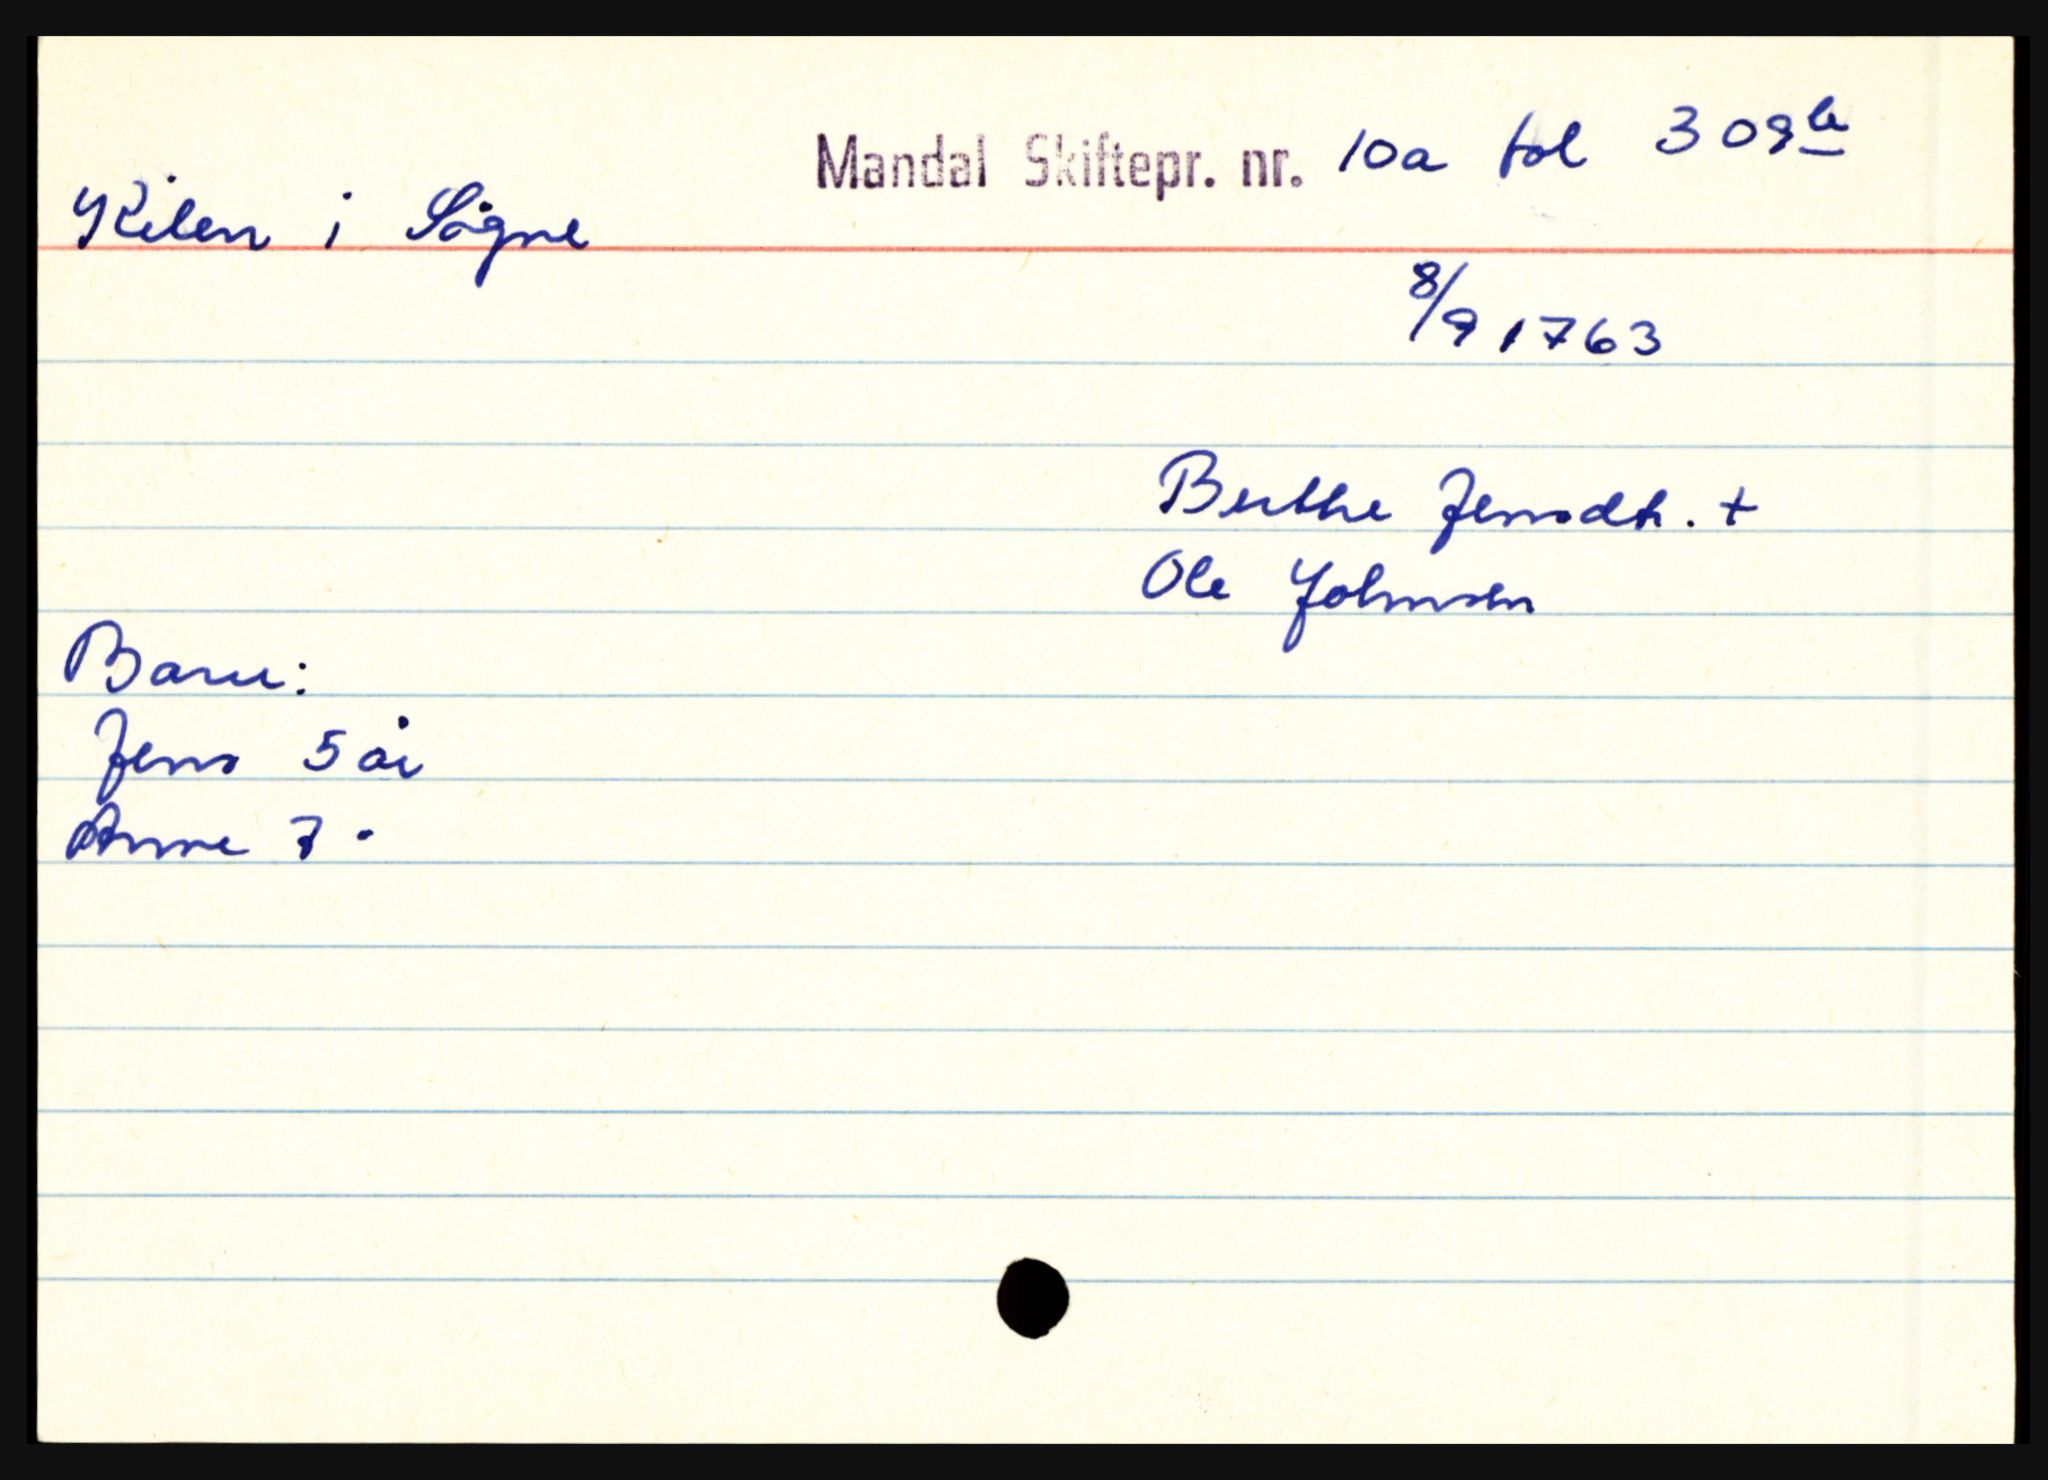 Mandal Skiftepr. nr. 10a fol 309b
Kilen i Søgne
8/9 1763
Berthe Jensdtr. +
Ole Johnsen
Barn:
Jens 5 år
Anne 7 "